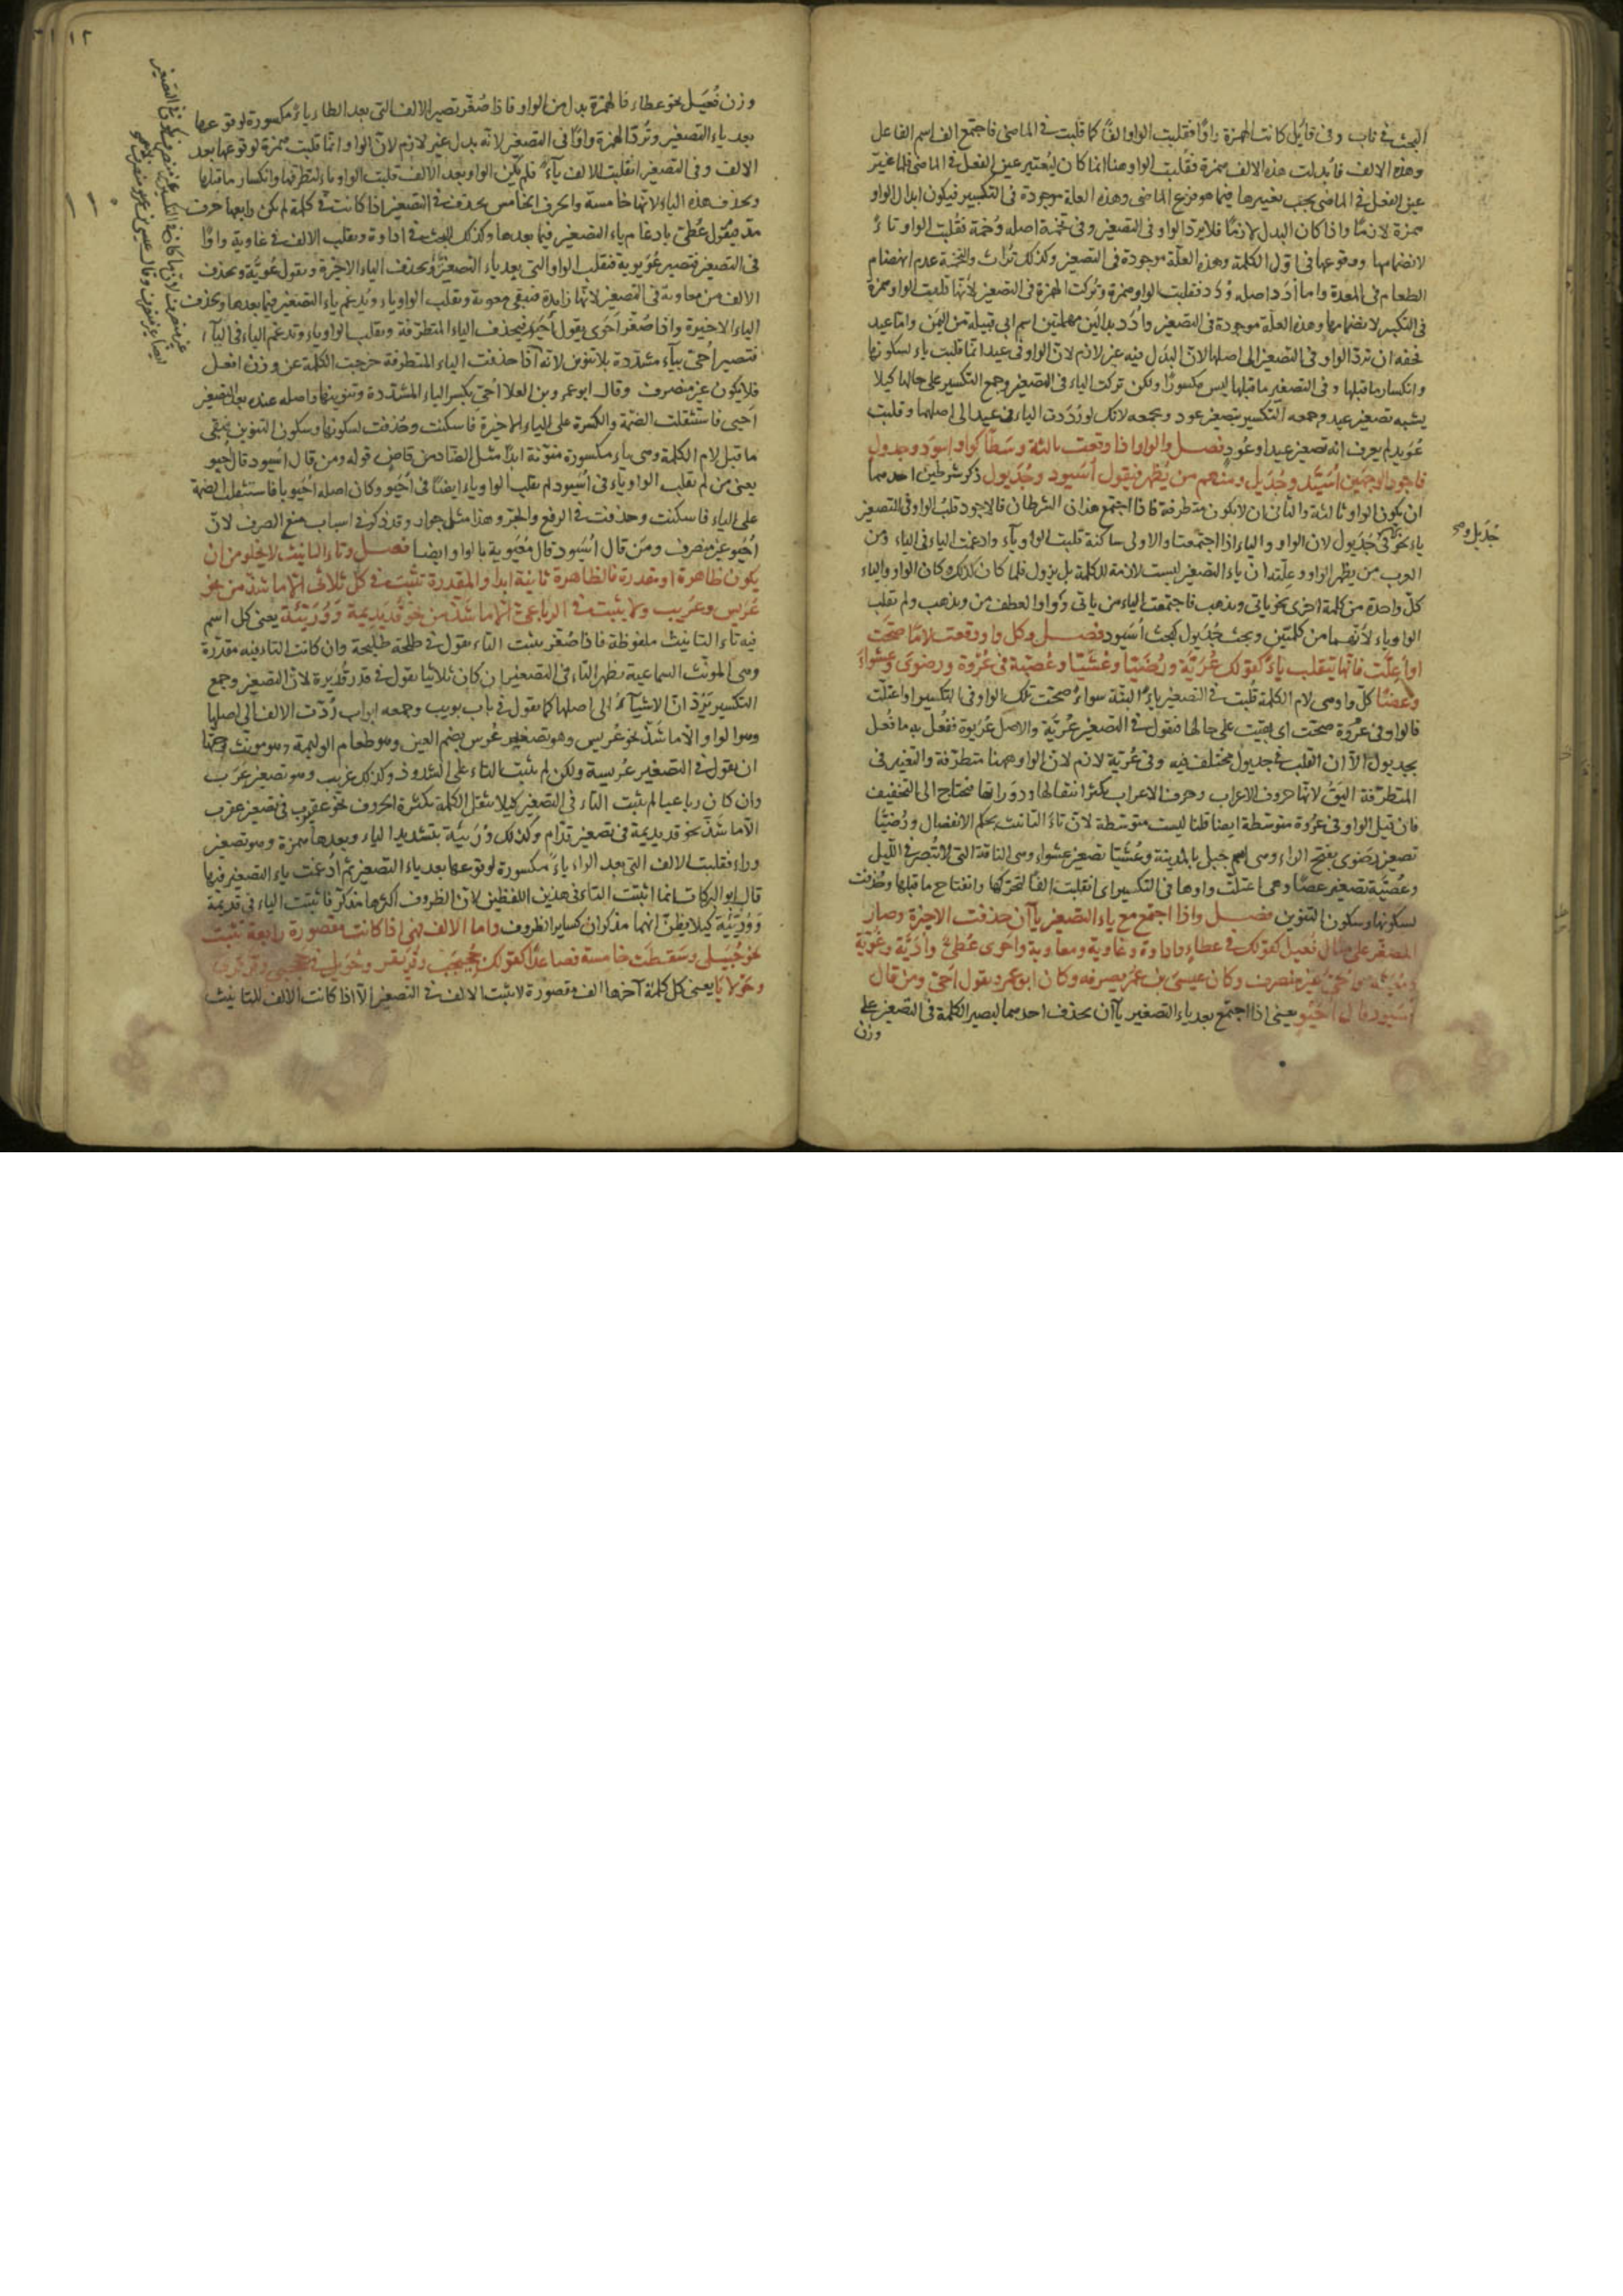 البحث في ناب وفي قايل كانت الهمزة واوًا فقلبت الواو الفًا كما قلبت في الماضي فاجتمع الف اسم الفاعل
وهذه الالف فابدلت هذه الالف همزة وقلبت الواو هنا انما كان لتعتبر عين الفعل في الماضي فلما غيّر
عين الفعل في الماضي يجب تغييرها فيما هو فرع الماضي وهذه العلة موجودة في التكسير فيكون ابدال الواو
همزة لازمًا واذا كان البدل لازمًا فلا يرد الواو في التصغير وفي تخمة اصله وُخمة فقلبت الواو تاءً
لانضمامها ووقوعها في اوّل الكلمة وهذه العلّة موجودة في التصغير وكذلك تراث والتخمة عدم انهضام
الطعام في المعدة واما أدَد اصله وُدَد فقلبت الواو همزة وتركت الهمزة في التصغير لأنّها قلبت الواو همزة
في التكبير لانضمامها وهذه العلّة موجودة في التصغير وأدَد بدالين مهملتين اسم ابي قبيلة من اليمن وامّا عيد
فحقه ان تردّ الواو في التصغير الى اصلها لانّ البدل فيه غير لازم لان الواو في عيد انّما قلبت ياء لسكونها
وانكسار ما قبلها وفي التصغير ما قبلها ليس مكسورًا ولكن تركت الياء في التصغير وجمع التكسير على حالها كيلا
يشبه تصغير عيد وجمعه التكسير بتصغير عود وبجمعه لانك لو رددت الياء في عيد الى اصلها وقلبت
عُوَيد لم يعرف انه تصغير عيد او عُود فصل والواو اذا وقعت ثالثة وسَطًا كواو اسوَد وجدول
فاجود الوجهين اُسَيّد وجُدَيل ومنهم من يُظهر فيقول اُسَيود وجُدَيول ذكر شرطين احدهما
ان يكون الواو ثالثة والثاني ان لا يكون متطرفة فاذا اجتمع هذان الشرطان فالاجود قلب الواو في التصغير
ياء نحو في جُدَيول لان الواو والياء اذا اجتمعتا والاولى ساكنة قلبت الواو ياء وادغمت الياء في الياء ومن
العرب من يظهر الواو وعلّته ان ياء التصغير ليست لازمة للكلمة بل يزول فلما كان كذلك وكان الواو والياء
كلّ واحدة من كلمة اخرى نحو ياتي ويذهب فاجتمعت الياء من ياتي وواو العطف من ويذهب ولم تقلب
الواو ياء لأنهما من كلمتين وبحث جُدَيول كبحث اُسَيود فصل وكل واو وقعت لامًا صحّت
او اعلّت فانها تنقلب ياء كقولك عُرَيّة ورُضَيّا وعُشَيّا وعُصَيّة في عُروة ورضوَى وعشواء
وعصًا كل واو هي لام الكلمة قلبت في التصغير ياءً البتّة سواء صحّت تلك الواو في التكسير او اعتلّت
فالواو في عروة صحّت اي بقيت على حالها فتقول في التصغير عُرَيّة والاصل عُرَيوة ففعل به ما فُعل
بجديول الّا ان القلب في جديول مختلف فيه وفي عُرَيّة لازم لان الواو ههنا متطرّفة والتغير في
المتطرّفة اليَقُ لانها حروف الاعراب وحرف الاعراب يكثر انتقالها ودورانها فتحتاج الى التخفيف
فان قيل الواو في عُروة متوسّطة ايضا قلنا ليست متوسّطة لانّ تاءَ التانيث بحكم الانفصال ورُضَيّا
تصغير رَضوَى بفتح الراء وهي اسم جبل بالمدينة وعُشَيّا تصغير عشواء وهي الناقة التي لا تُبصر في الليل
وعُصَيّة تصغير عصًا وهي اعتلّت واوها في التكسير اي انقلبت الفًا لتحركها وانفتاح ما قبلها وحُذفت
لسكونها وسكون التنوين فصل واذا اجتمع مع ياء التصغير ياآن حذفت الاخيرة وصار
المصغّر على مثال فُعيل كقولك في عطاء واداوة وغاوية ومعاوية واحوى عُطَيّ واُدَيّة وغُوَيّة
ومُعَيّة واُحَيّ غير منصرف وكان عيسى بن عمر يصرفه وكان ابو عمرو يقول اُحَيٍّ ومن قال
اُسَيود قال اُحَيوٍ يعني اذا اجتمع بعد ياء التصغير ياآن يحذف احدهما ليصير الكلمة في التصغير على
وزن
جُدَيل وصح
وزن فُعَيل نحو عطاء فالهمزة بدل من الواو فاذا صُغّر تصير الالف التي بعد الطاء ياءً مكسورة لوقوعها
بعد ياء التصغير وتُردّ الهمزة واوًا في التصغير لانّه بدل غير لازم لانّ الواو انّما قلبت همزة لوقوعها بعد
الالف وفي التصغير انقلبت الالف ياءً فلم يكن الواو بعد الالف قلبت الواو ياء لتطرفها وانكسار ما قبلها
وتحذف هذه الياء لانها خامسة والحرف الخامس يحذف في التصغير اذا كانت في كلمة لم يكن رابعها حرف
مد فيقول عُطَيّ بادغام ياء التصغير فيما بعدها وكذلك البحث في اداوة وتقلب الالف في غاوية واوًا
في التصغير فتصير غُوَيوية فتقلب الواو التي بعد ياء التصغير ياءً وتحذف الياء الاخيرة وتقول غُوَيّة وتحذف
الالف من معاوية في التصغير لانّها زايدة فتبقى معوية وتقلب الواو ياء وتُدغم ياء التصغير فيما بعدها وتحذف
الياء الاخيرة واذا صُغّر اَحوَى يقول اُحَيوي فيحذف الياء المتطرّفة وتقلب الواو ياء وتدغم الياء في الياء
فتصير اُحَيّ بياء مشدّدة بلا تنوين لانّه اذا حذفت الياء المتطرفة خرجت الكلمة عن وزن افعل
فلا يكون غير منصرف وقال ابو عمرو بن العلا اُحَيٍّ بكسر الياء المشدّدة وتنوينها واصله عنده بعد التصغير
اُحَيي فاستثقلت الضمّة والكسرة على الياء الاخيرة فاسكنت وحُذفت لسكونها وسكون التنوين فبقي
ما قبل لام الكلمة وهي ياء مكسورة منوّنة ابدًا مثل الضاد من قاضٍ قوله ومن قال اُسَيود قال اُحَيوٍ
يعني من لم يقلب الواو ياء في اُسَيود لم يقلب الواو ياء ايضًا في اُحَيو وكان اصله اُحَيويًا فاستثقلت الضمة
على الياء فاسكنت وحذفت في الرفع والجر وهذا مثل جوارٍ وقد ذكر في اسباب منع الصرف لانّ
اُحَيو غير منصرف ومَن قال اُسَيود قال مُعَيوية بالواو ايضا فصل وتاء التانيث لا يخلو من ان
يكون ظاهرة او مقدرة فالظاهرة ثابتة ابدًا والمقدرة تثبت في كل ثلاثي الّا ما شذّ من نحو
عُرَيس وعُرَيب ولا يثبت في الرباعي الّا ما شذّ من نحو قُدَيديمة ووُرَيّئة يعني كل اسم
فيه تاء التانيث ملفوظة فاذا صُغّر يثبت التاء يقول في طلحة طليحة وان كانت التاء فيه مقدّرة
وهي المونّث السماعية يظهر التاء في التصغير ان كان ثلاثيا يقول في قدر قُدَيرة لانّ التصغير وجمع
التكسير يَرُدّان الاشياءَ الى اصلها كما يقول في باب بويب وجمعه ابواب رُدّت الالف الى اصلها
وهو الواو والّا ما شَذّ نحو عُريس وهو تصغير عُرس بضم العين وهو طعام الوليمة وهو مونث وحقها
ان يقول في التصغير عُريسة ولكن لم يثبت التاء على الشذوذ وكذلك عُريب وهو تصغير عَرَب
وان كان رباعيا لم يثبت التاء في التصغير كيلا يثقل الكلمة بكثرة الحروف نحو عقيرب في تصغير عقرب
الّا ما شذّ نحو قديديمة في تصغير قدّام وكذلك وُرَيّئة بتشديد الياء وبعدها همزة وهو تصغير
وراء فقلبت الالف التي بعد الراء ياءً مكسورة لوقوعها بعد ياء التصغير ثم ادغمت ياء التصغير فيها
قال ابو البركات انما اثبتت التاء في هذين اللفظين لانّ الظروف اكثرها مذكّر فاثبتت التاء في قديديمة
ووُرَيّئة كيلا يظنّ انهما مذكران كساير الظروف واما الالف فهي اذا كانت مقصورة رابعة تثبت
نحو حُبَيلى وسَقطَت خامسة فصاعدًا كقولك جُحَيجب وقُرَيقر وحُوَيل في جحجبى وقرقرى
وحَولايا يعني كل كلمة آخرها الف مقصورة لا يثبت الالف في التصغير الّا اذا كانت الالف للتانيث